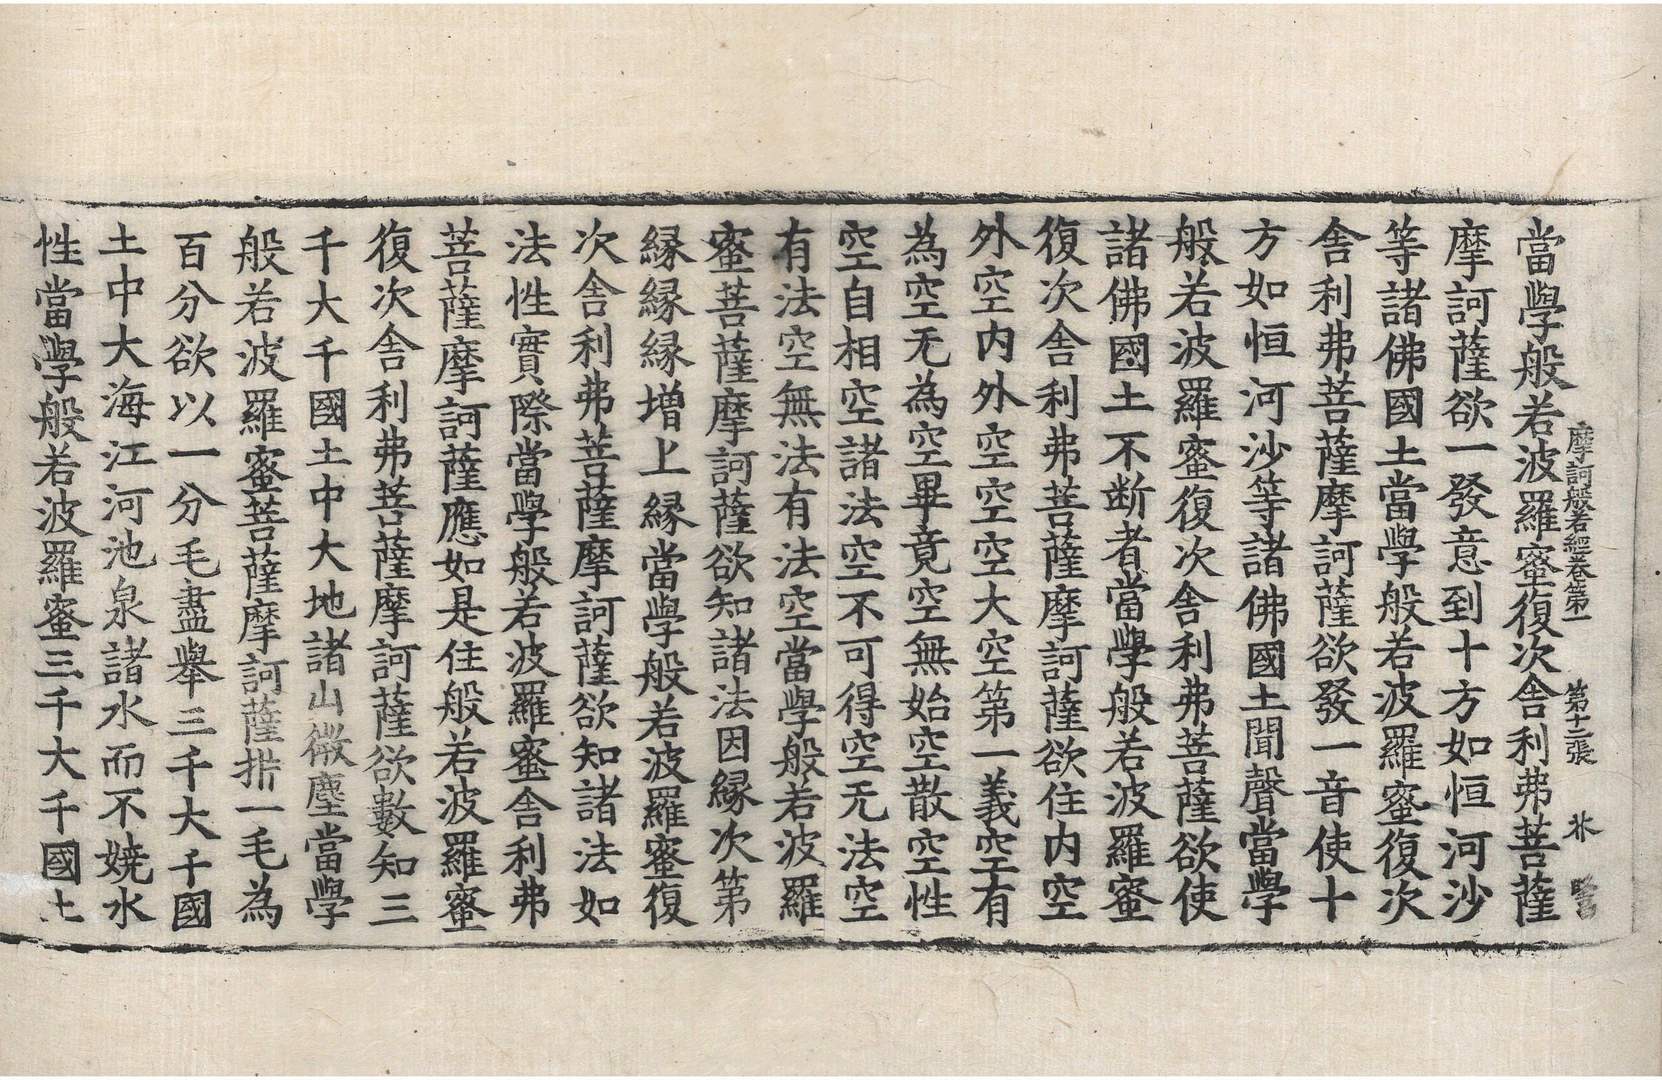 摩訶般若經卷第一 第十二張
當學般若波羅蜜復次舍利弗菩薩
摩訶薩欲一發意到十方如恒河沙
等諸佛國土當學般若波羅蜜復次
舍利弗菩薩摩訶薩欲發一音使十
方如恒河沙等諸佛國土聞聲當學
般若波羅蜜復次舍利弗菩薩欲使
諸佛國土不断者當學般若波羅蜜
復次舍利弗菩薩摩訶薩欲住内空
外空内外空空空大空第一義空有
為空无為空畢竟空無始空散空性
空自相空諸法空不可得空无法空
有法空無法有法空當學般若波羅
蜜菩薩摩訶薩欲知諸法因縁次第
縁縁縁增上縁當學般若波羅蜜復
次舍利弗菩薩摩訶薩欲知諸法如
法性實際當學般若波羅蜜舍利弗
菩薩摩訶薩應如是住般若波羅蜜
復次舍利弗菩薩摩訶薩欲數知三
千大千國土中大地諸山微塵當學
般若波羅蜜菩薩摩訶薩析一毛為
百分欲以一分毛盡舉三千大千國
土中大海江河池泉諸水而不嬈水
性當學般若波羅蜜三千大千國土